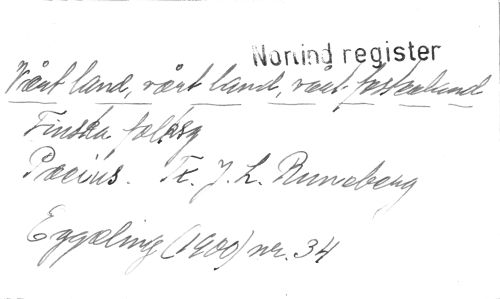 Norlind register
Vårt land, vårt land, vårt fosterland
Finska folksg
Pacius. Tx. J. L. Runeberg
Eggeling (1900) nr. 34